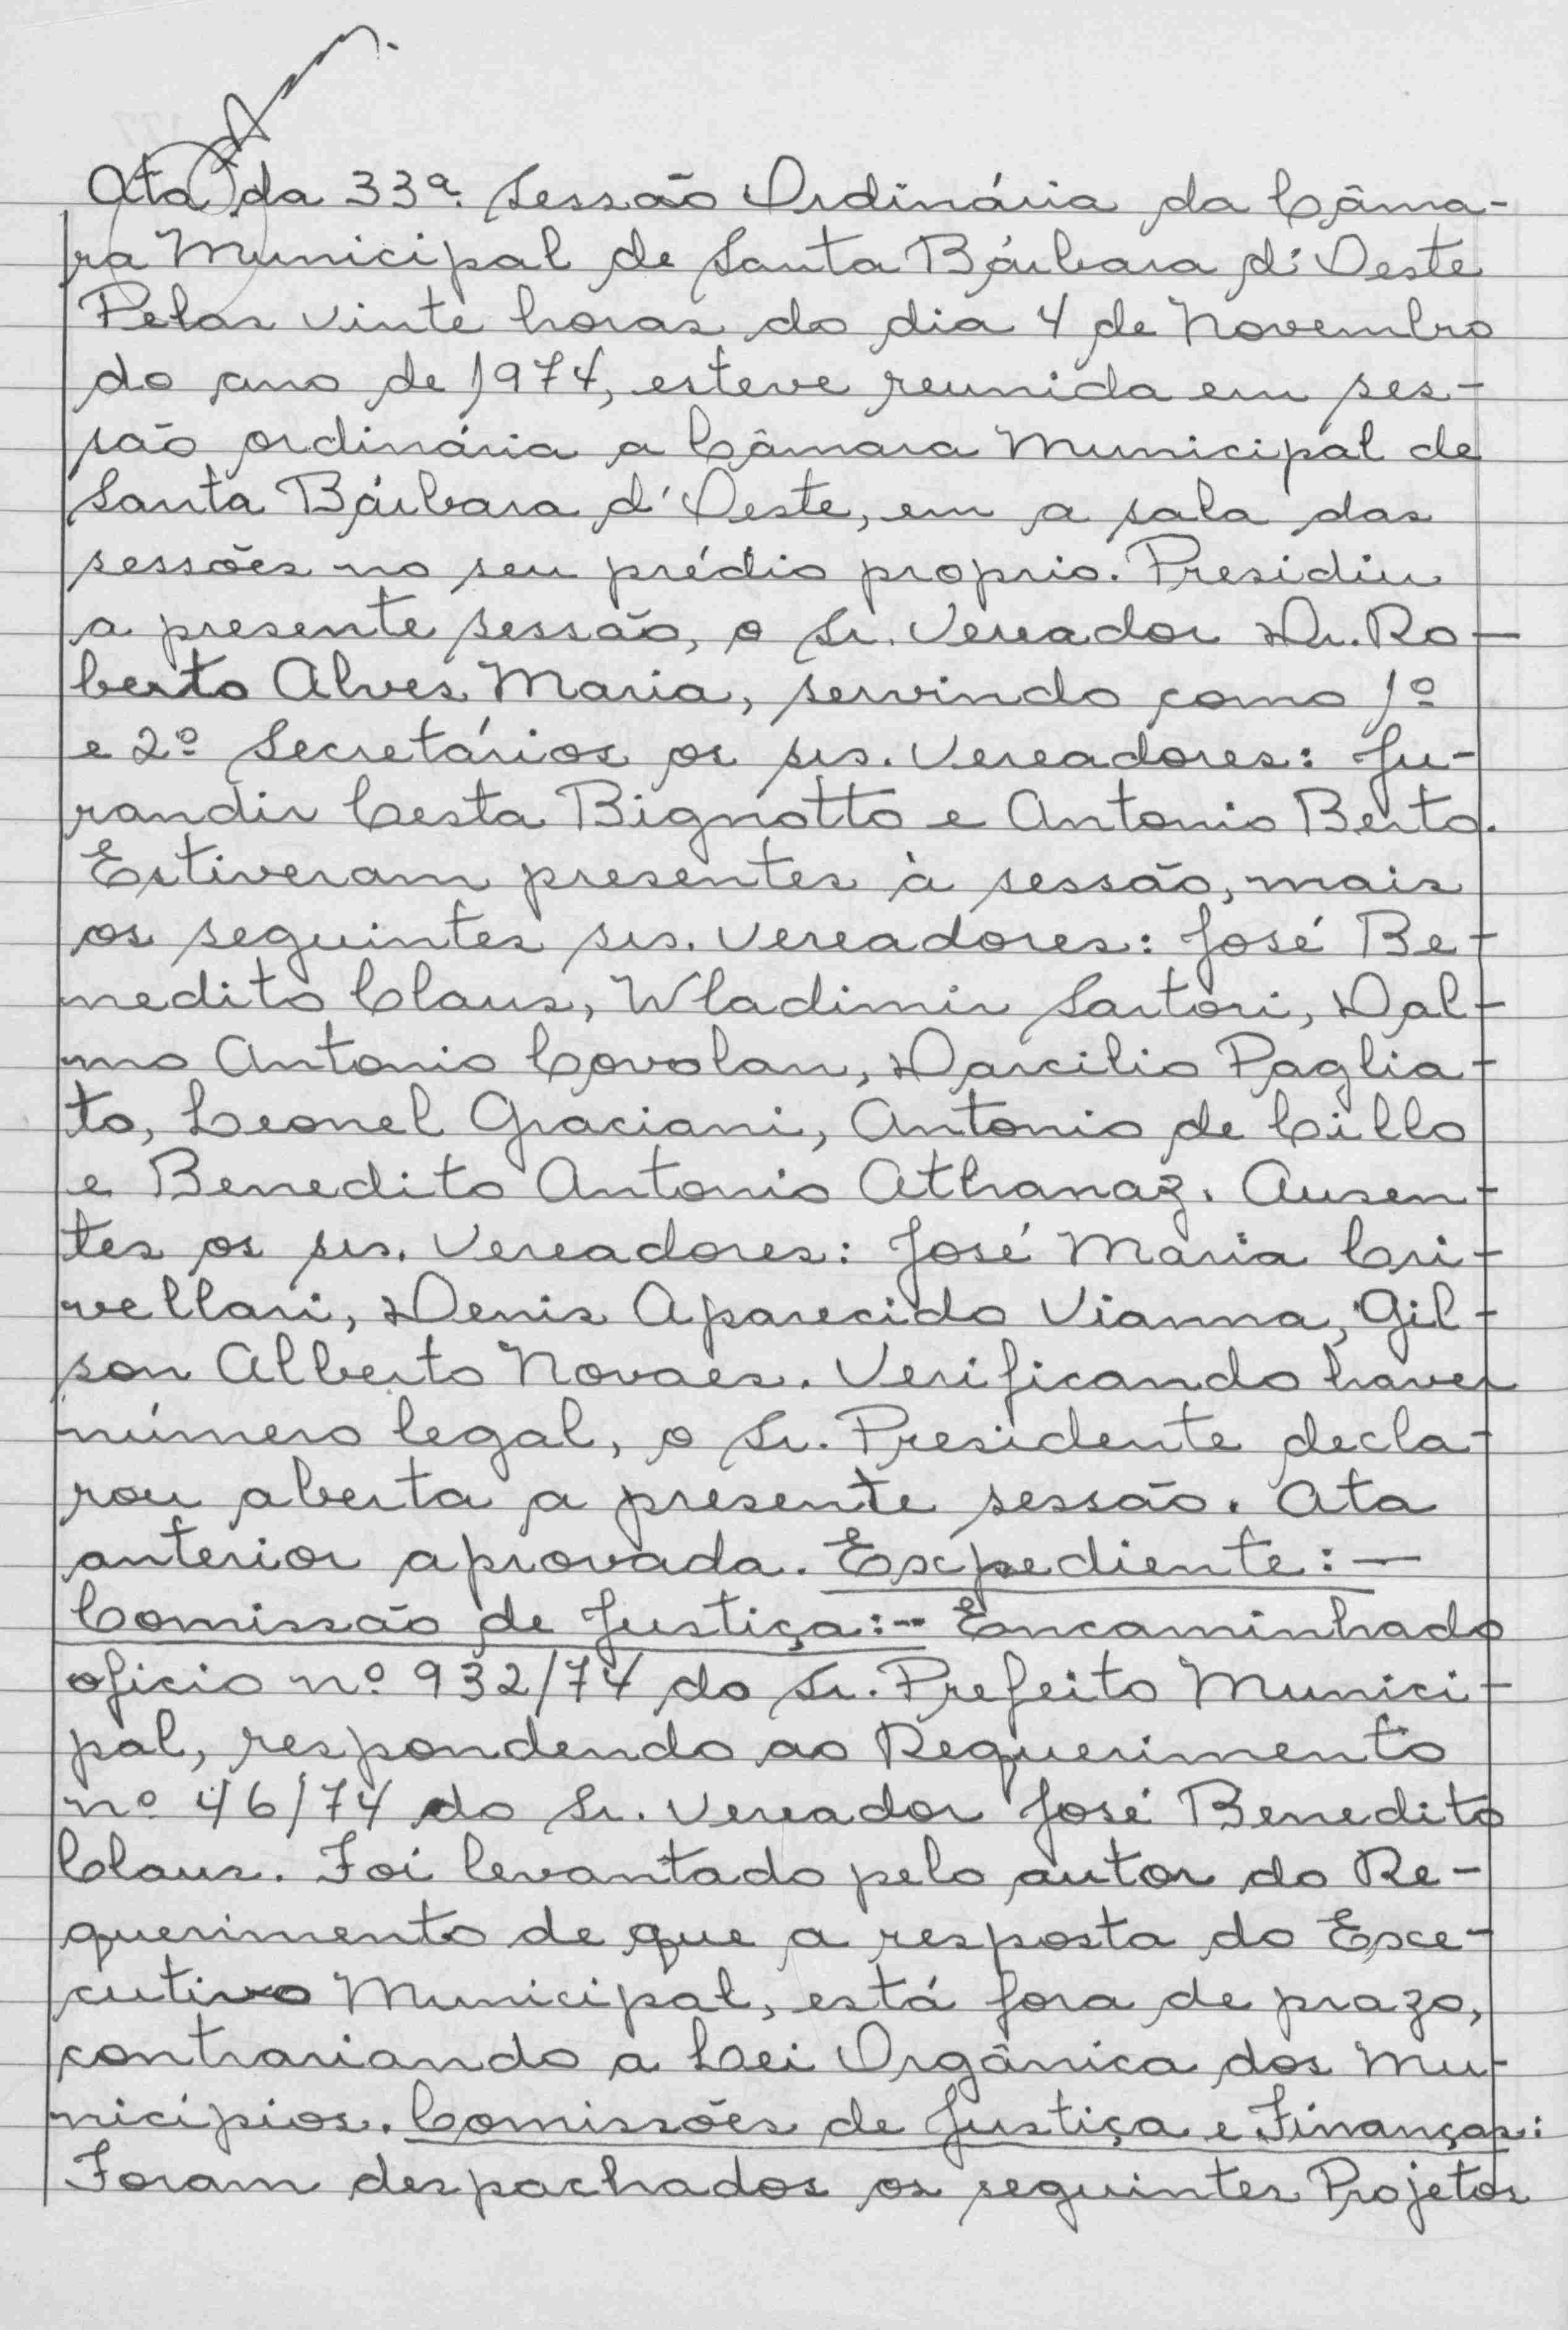 Ata da 33ª. Sessão Ordinária da Câma-
ra Municipal de Santa Bárbara d'Oeste
Pelas vinte horas do dia 4 de Novembro
do ano de 1974, esteve reunida em ses-
são ordinária a Câmara Municipal de
Santa Bárbara d'Oeste, em a sala das
sessões no seu prédio proprio. Presidiu
a presente sessão, o Sr. Vereador Dr. Ro-
berto Alves Maria, servindo como 1º
e 2º Secretários os srs. Vereadores: Ju-
randir Cesta Bignotto e Antonio Berto.
Estiveram presentes à sessão, mais
os seguintes srs. Vereadores: José Be-
nedito Claus, Wladimir Sartori, Dal-
mo Antonio Covolan, Darcilio Paglia-
to, Leonel Graciani, Antonio de Cillo
e Benedito Antonio Athanaz. Ausen-
tes os srs. Vereadores: José Maria Cri-
vellari, Denis Aparecido Vianna, Gil-
son Alberto Novaes. Verificando haver
número legal, o Sr. Presidente decla-
rou aberta a presente sessão. Ata
anterior aprovada. Expediente:-
Comissão de Justiça:- Encaminhado
oficio nº 932/74 do Sr. Prefeito Munici-
pal, respondendo ao Requerimento
nº 46/74 do Sr. Vereador José Benedito
Claus. Foi levantado pelo autor do Re-
querimento de que a resposta do Exe-
cutivo Municipal, está fora de prazo,
contrariando a Lei Orgânica dos Mu-
nicípios. Comissões de Justiça e Finanças:
Foram despachados os seguintes Projetos